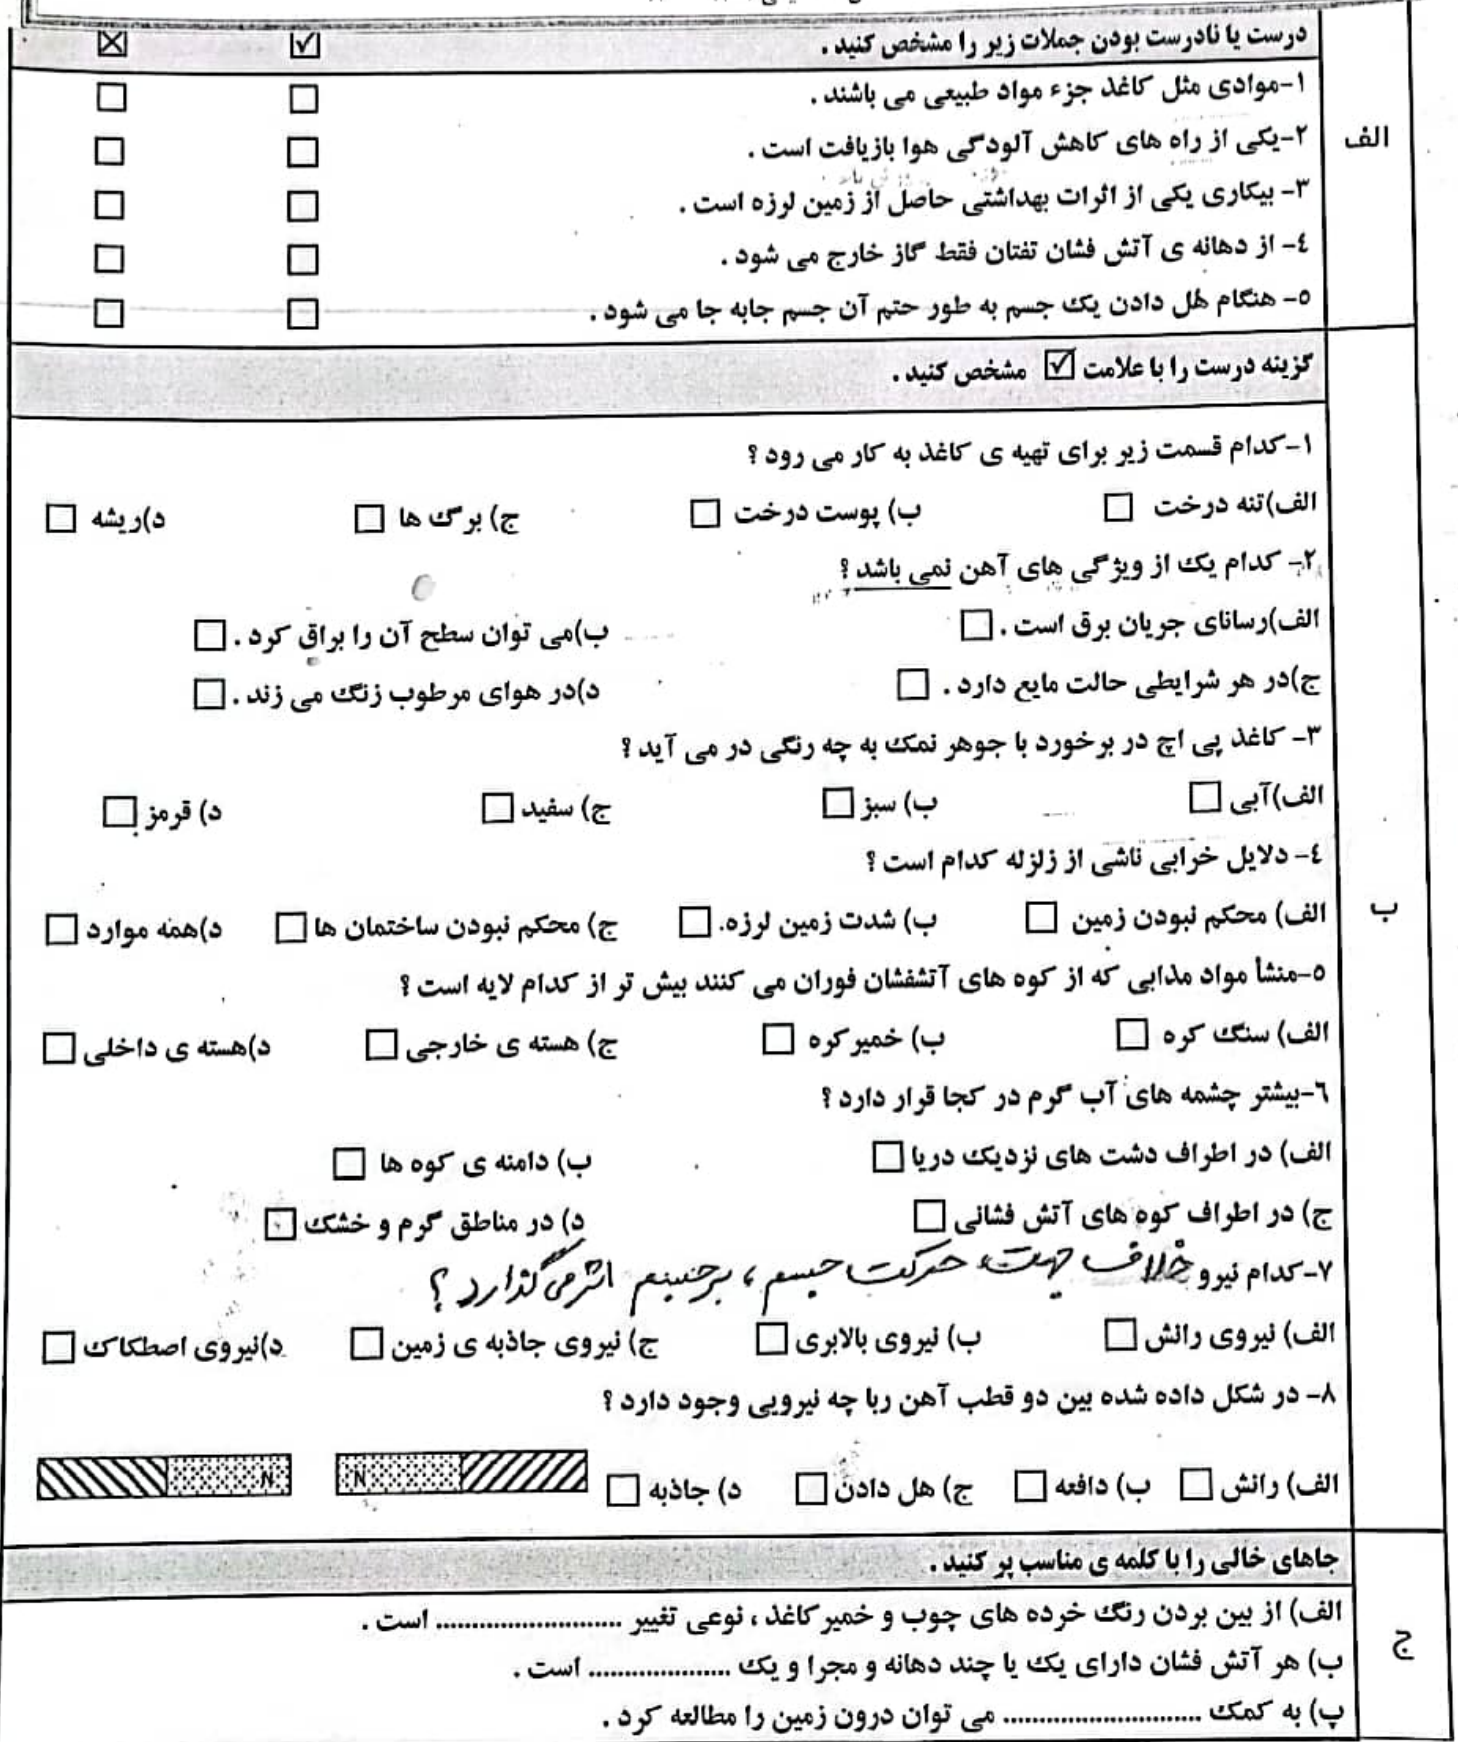 درست یا نادرست بودن جملات زیر را مشخص کنید .
الف
۱-موادی مثل کاغذ جزء مواد طبیعی می باشند .
۲-یکی از راه های کاهش آلودگی هوا بازیافت است .
۳- بیکاری یکی از اثرات بهداشتی حاصل از زمین لرزه است .
٤- از دهانه ی آتش فشان تفتان فقط گاز خارج می شود .
٥- هنگام هُل دادن یک جسم به طور حتم آن جسم جابه جا می شود .
گزینه درست را با علامت ☑ مشخص کنید .
ب
۱-کدام قسمت زیر برای تهیه ی کاغذ به کار می رود ؟
الف)تنه درخت □ ب) پوست درخت □ ج) برگ ها □ د)ریشه □
۲- کدام یک از ویژگی های آهن نمی باشد ؟
الف)رسانای جریان برق است . □ ب)می توان سطح آن را براق کرد . □
ج)در هر شرایطی حالت مایع دارد . □ د)در هوای مرطوب زنگ می زند . □
۳- کاغذ پی اچ در برخورد با جوهر نمک به چه رنگی در می آید ؟
الف)آبی □ ب) سبز □ ج) سفید □ د) قرمز □
٤- دلایل خرابی ناشی از زلزله کدام است ؟
الف) محکم نبودن زمین □ ب) شدت زمین لرزه. □ ج) محکم نبودن ساختمان ها □ د)همه موارد □
٥-منشأ مواد مذابی که از کوه های آتشفشان فوران می کنند بیش تر از کدام لایه است ؟
الف) سنگ کره □ ب) خمیر کره □ ج) هسته ی خارجی □ د)هسته ی داخلی □
٦-بیشتر چشمه های آب گرم در کجا قرار دارد ؟
الف) در اطراف دشت های نزدیک دریا □ ب) دامنه ی کوه ها □
ج) در اطراف کوه های آتش فشانی □ د) در مناطق گرم و خشک □
۷-کدام نیرو خلاف جهت حرکت جسم ، برجسم اثر می گذارد ؟
الف) نیروی رانش □ ب) نیروی بالابری □ ج) نیروی جاذبه ی زمین □ د)نیروی اصطکاک □
۸- در شکل داده شده بین دو قطب آهن ربا چه نیرویی وجود دارد ؟
الف) رانش □ ب) دافعه □ ج) هل دادن □ د) جاذبه □ N N
جاهای خالی را با کلمه ی مناسب پر کنید .
ج
الف) از بین بردن رنگ خرده های چوب و خمیر کاغذ ، نوعی تغییر .......................... است .
ب) هر آتش فشان دارای یک یا چند دهانه و مجرا و یک .................... است .
پ) به کمک ............................ می توان درون زمین را مطالعه کرد .